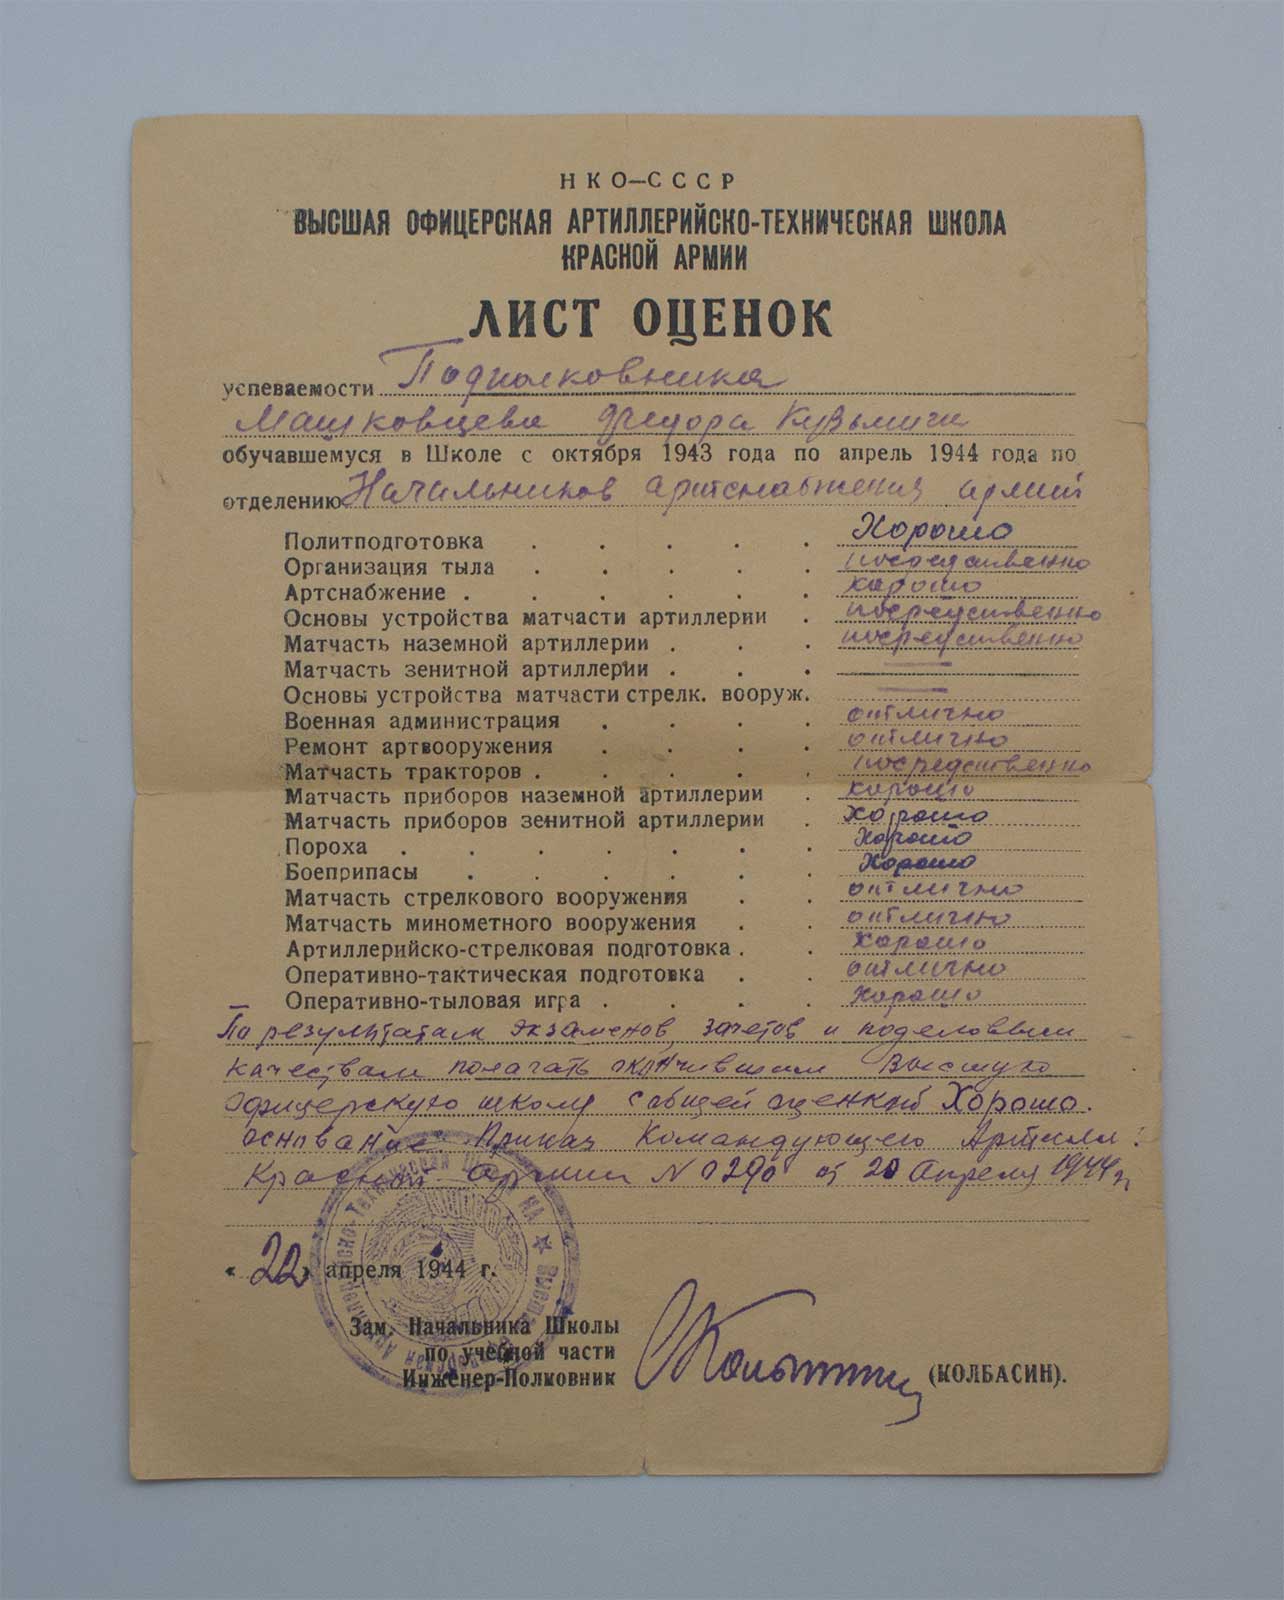 НКО—СССР
ВЫСШАЯ ОФИЦЕРСКАЯ АРТИЛЛЕРИЙСКО-ТЕХНИЧЕСКАЯ ШКОЛА
КРАСНОЙ АРМИИ
ЛИСТ ОЦЕНОК
успеваемости Подполковника
Машковцева Федора Кузьмича
обучавшемуся в Школе с октября 1943 года по апрель 1944 года по
отделению Начальников артснабжения армий
Политподготовка . . . . . Хорошо
Организация тыла . . . . . посредственно
Артснабжение . . . . . . хорошо
Основы устройства матчасти артиллерии . посредственно
Матчасть наземной артиллерии . . . посредственно
Матчасть зенитной артиллерии . . . —
Основы устройства матчасти стрелк. вооруж. —
Военная администрация . . . . отлично
Ремонт артвооружения . . . . отлично
Матчасть тракторов . . . . . посредственно
Матчасть приборов наземной артиллерии . хорошо
Матчасть приборов зенитной артиллерии . хорошо
Пороха . . . . . . . хорошо
Боеприпасы . . . . . . хорошо
Матчасть стрелкового вооружения . . отлично
Матчасть минометного вооружения . . отлично
Артиллерийско-стрелковая подготовка . . хорошо
Оперативно-тактическая подготовка . . отлично
Оперативно-тыловая игра . . . . хорошо
По результатам экзаменов, зачетов и по деловым
качествам полагать окончившим Высшую
офицерскую школу с общей оценкой Хорошо.
основание: Приказ Командующего Артилл:
Красной Армии N 0290 от 20 Апреля 1944 г
«22» апреля 1944 г.
Зам. Начальника Школы
по учебной части
Инженер-Полковник (КОЛБАСИН).